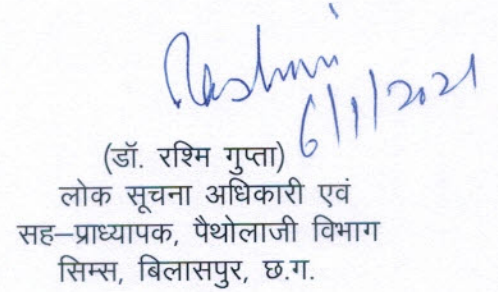 Rashmi
6/1/2021
(डॉ. रश्मि गुप्ता)
लोक सूचना अधिकारी एवं
सह–प्राध्यापक, पैथोलाजी विभाग
सिम्स, बिलासपुर, छ.ग.